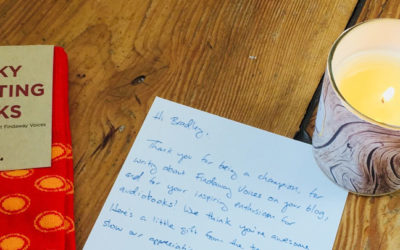 KY
TING
KS
t Findaway Voices
Hi Bradley,
Thank you for being a champion, for
writing about Findaway Voices on your blog,
and for your inspiring enthusiasm for
audiobooks! We think you're awesome
Here's a little gift from the
show our appreciation